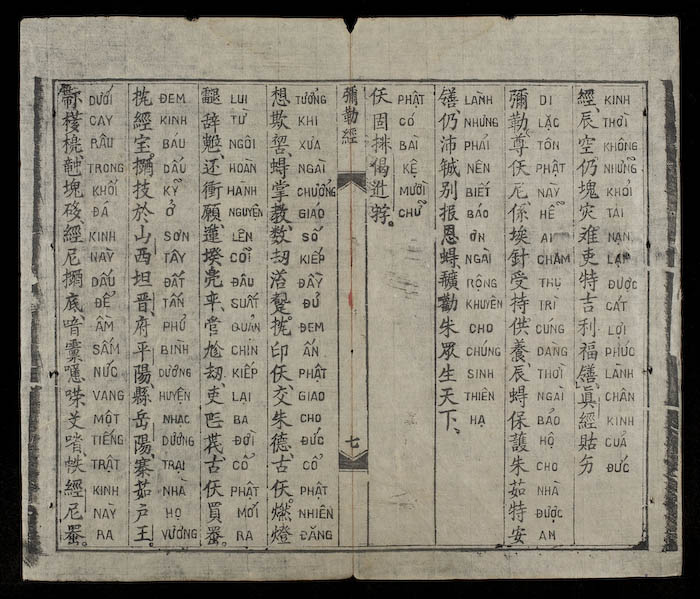 經、辰空仍塊灾难吏特吉利福真經貼
KINH THỜI KHÔNG NHỮNG KHỎI TÁI NẠN LẠI ĐƯỢC CÁT LỢI PHÚC LÀNH CHÂN KINH CUẢ ĐỨC
彌勒尊仸尼係埃針受持供養、辰蜳保護朱茹特安
DI LẶC TỒN PHẬT NÀY HỄ AI CHĂM THỤ TRÌ CUNG DÀNG THỜI NGÀI BẢO HỘ CHO NHÀ ĐƯỢC AN
仍沛别报恩蜳勸朱眾生天下、
LÀNH NHƯNG PHẢI NÊN BIẾT BÁO ƠN NGÀI RỘNG KHUYÊN CHO CHÚNG SINH THIÊN HẠ
仸固排偈
PHẬT CÓ BÀI KỆ MƯỜI CHỮ
彌勒經
七
想欺蜳掌教、数劫印仸交朱德古仸燃燈
TƯỞNG KHI XƯA NGÀI CHƯỞNG GIÁO SỐ KIẾP ĐẦY ĐỦ ĐEM ẤN PHẬT GIAO CHO ĐỨC CỔ PHẬT NHIÊN ĐĂNG
辞还衝願蓮劫、吏古仸買
LUI TỪ NGÔI HOÀN HANH NGUYỆN LÊN CÕI ĐÂU SUẤT QUẢN CHÍN KIẾP LẠI BA ĐỜI CỔ PHẬT MỚI RA
經宝技於山西坦晋府平陽縣岳陽寨茹户王。
ĐEM KINH BÁU DẤU KỸ Ở SƠN TÂY ĐẤT TẤN PHỦ BÌNH DƯƠNG HUYỆN NHẠC DƯƠNG TRẠI NHÀ HỌ VƯƠNG
塊經尼底經尼
DƯỚI CAY RÂU TRONG KHỐI ĐÁ KINH NAY DẤU ĐỂ ẦM SẤM NỨC VANG MỘT TIẾNG TRẬT KINH NAY RA